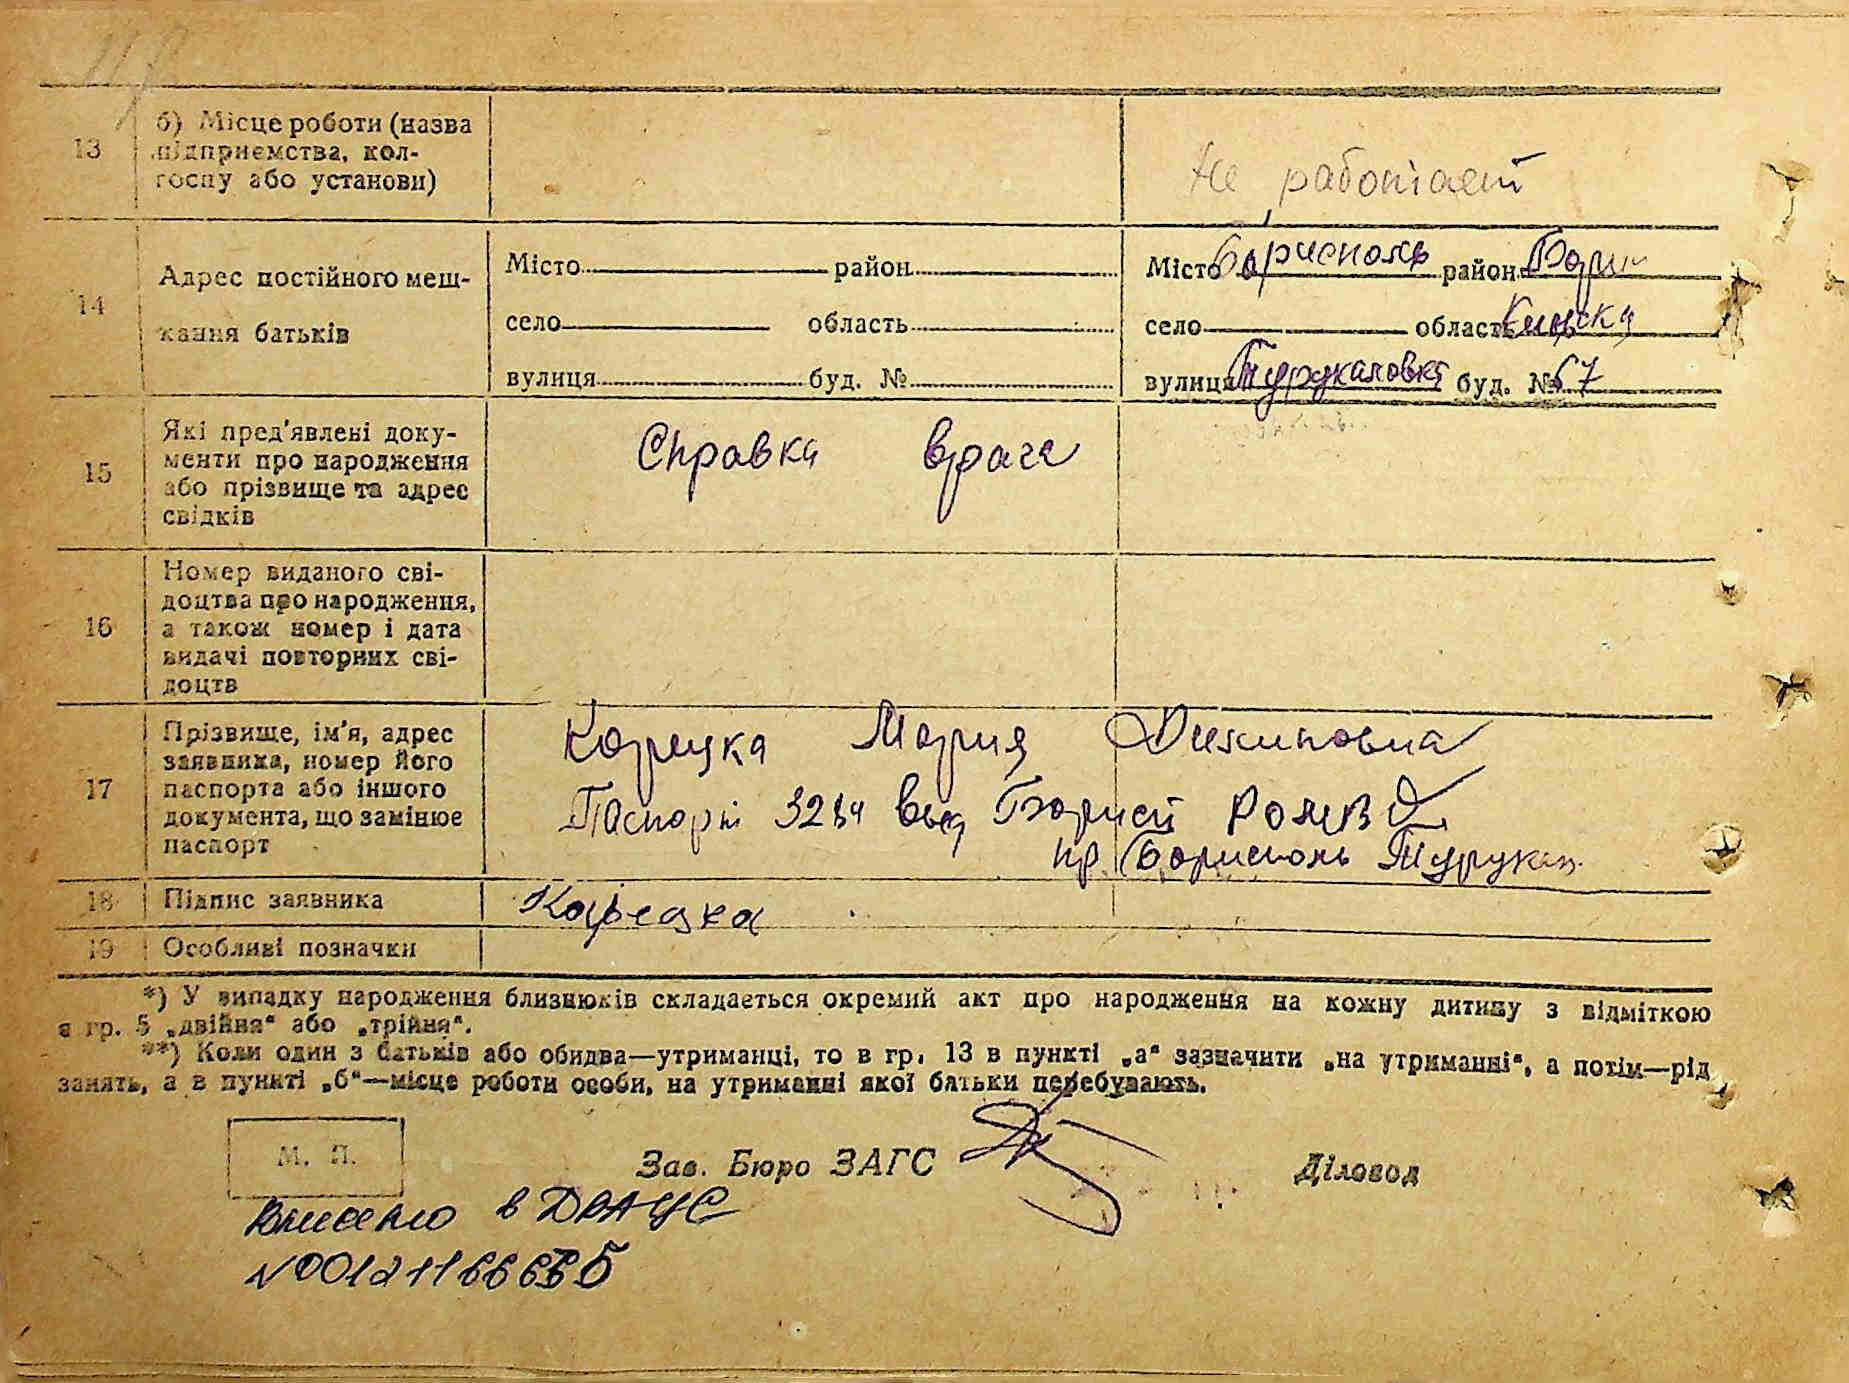 13
б) Місце роботи (назва
підприємства, кол-
госпу або установи)
Не работает
14
Адрес постійного меш-
кання батьків
Місто район
село область
вулиця буд. №
Місто Борисполь район Борис
село область Киевска
вулиця буд. № 67
15
Які пред'явлені доку-
менти про народження
або прізвище та адрес
свідків
Справка врача
16
Номер виданого сві-
доцтва про народження,
а також номер і дата
видачі повторних сві-
доцтв
17
Прізвище, ім'я, адрес
заявника, номер його
паспорта або іншого
документа, що замінює
паспорт
Корецка Мария
Паспорт выд
пр Борисполь Турукан
18
Підпис заявника
Корецка
19
Особливі позначки
*) У випадку народження близнюків складається окремий акт про народження на кожну дитину з відміткою
в гр. 5 „двійня“ або „трійня“.
**) Коли один з батьків або обидва—утриманці, то в гр. 13 в пункті „а“ зазначити „на утриманні“, а потім—рід
занять, а в пункті „б“—місце роботи особи, на утриманні якої батьки перебувають.
М. П.
Зав. Бюро ЗАГС
Діловод
Внесено в ДРАЦС